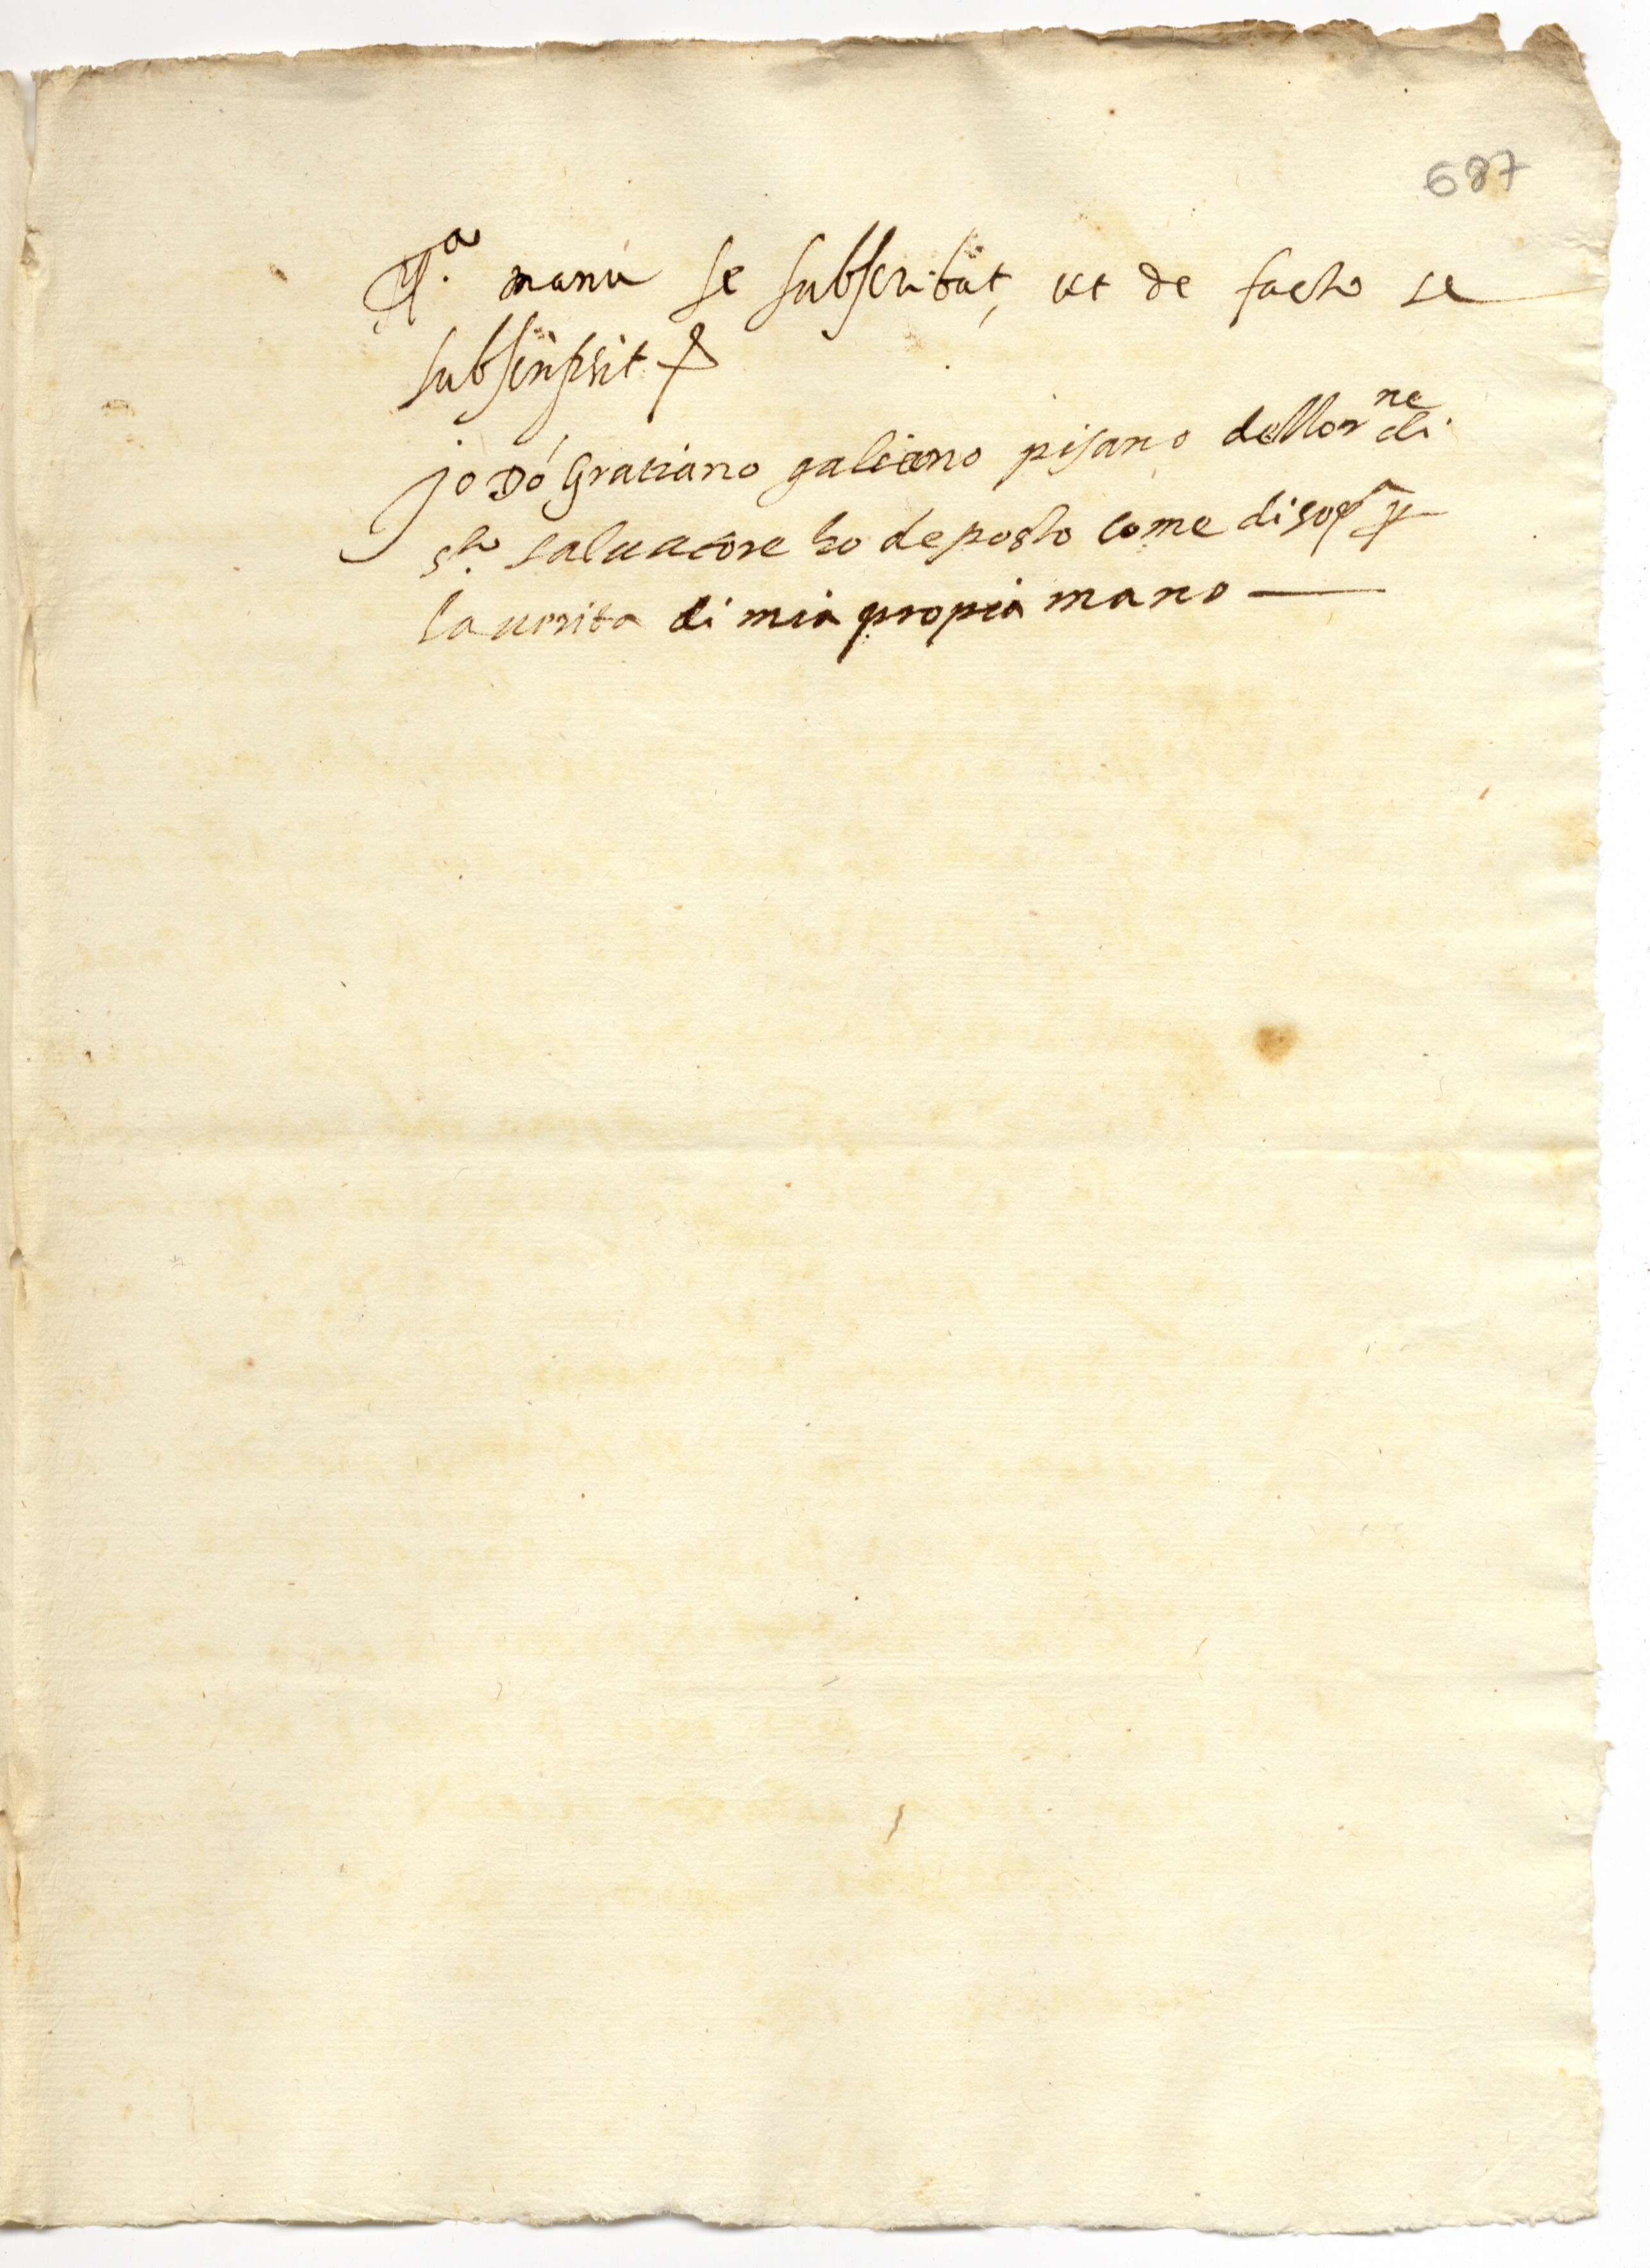 687
P.a manu se subscribat, ut de facto se
subscripsit
jo Dó Gratiano galieno pisano dell'or.ne di
s.to salvatore ho deposto come di sop.a p
la verita di mia propia mano —